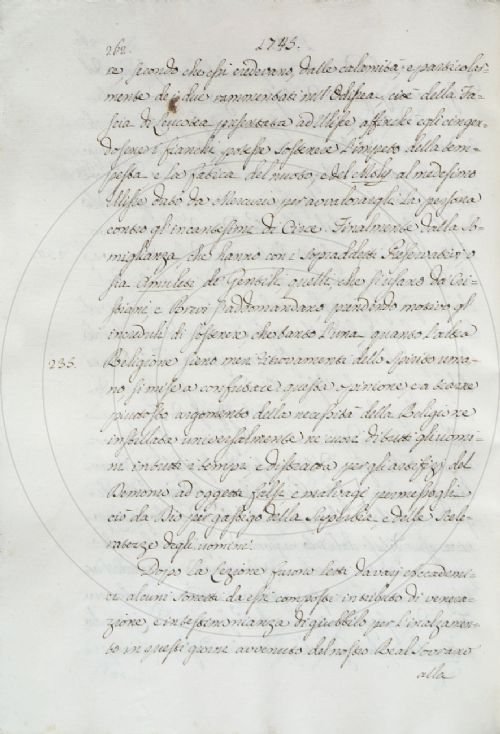 262.
1745.
re secondo che essi credevano, dalle calamità, e particolar-
mente de i due rammentati nell'Odissea, cioè della Fa-
scia di Leucotea presentata ad Ulisse affinchè egli cingen-
dosene i fianchi potesse sostenere l'impeto della tem-
pesta e la fatica del nuoto, e del Moly al medesimo
Ulisse dato da Mercurio per avvalorargli la persona
contro gl'incantesimi di Circe. Finalmente dalla So-
miglianza, che hanno con i sopraddetti Preservativi o
sia Amuleti de' Gentili quelli, che si usano da' Cri-
stiani, e Brevi s'addomandano prendendo motivo gl'
increduli di sostenere, che tanto l'una quanto l'altra
235.
Religione sieno meri ritrovamenti dello Spirito uma-
no si mise a confutare questa opinione, e a trarre
piuttosto argomento della necessità della Religione
instillata universalmente ne' cuori di tutti gli uomi-
ni in tutti i tempi e distratta per gli artifizj del
Demonio ad oggetti falsi e malvagi permessogli
ciò da Dio per gastigo della Superbia, e delle Scele-
ratezze degli uomini.
Dopo la Lezione furono letti da varj Accademi-
ci alcuni Sonetti da essi composti in tributo di venera-
zione, e in testimonianza di giubbilo per l'inalzamen-
to in questi giorni avvenuto del nostro Real Sovrano
alla